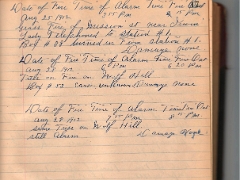 Date of Fire Time of Alarm Time Fire Out
Aug 28 1912 7 PM 8 PM
Grass Fire, of Madison St near
Lady Telephoned to Station #1.
Box # 28 burned in from Station # 1.
Damage none
Date of Fire Time of Alarm Time Fire Out
Aug 28 1912 6 PM 6 30 PM
Fire on Wolf Hill
Box # 52 cause, unknown Damage none
Date of Fire Time of Alarm Time Out
Aug 28 1912 8 PM PM
same Fire on Wolf Hill
still Alarm Damage